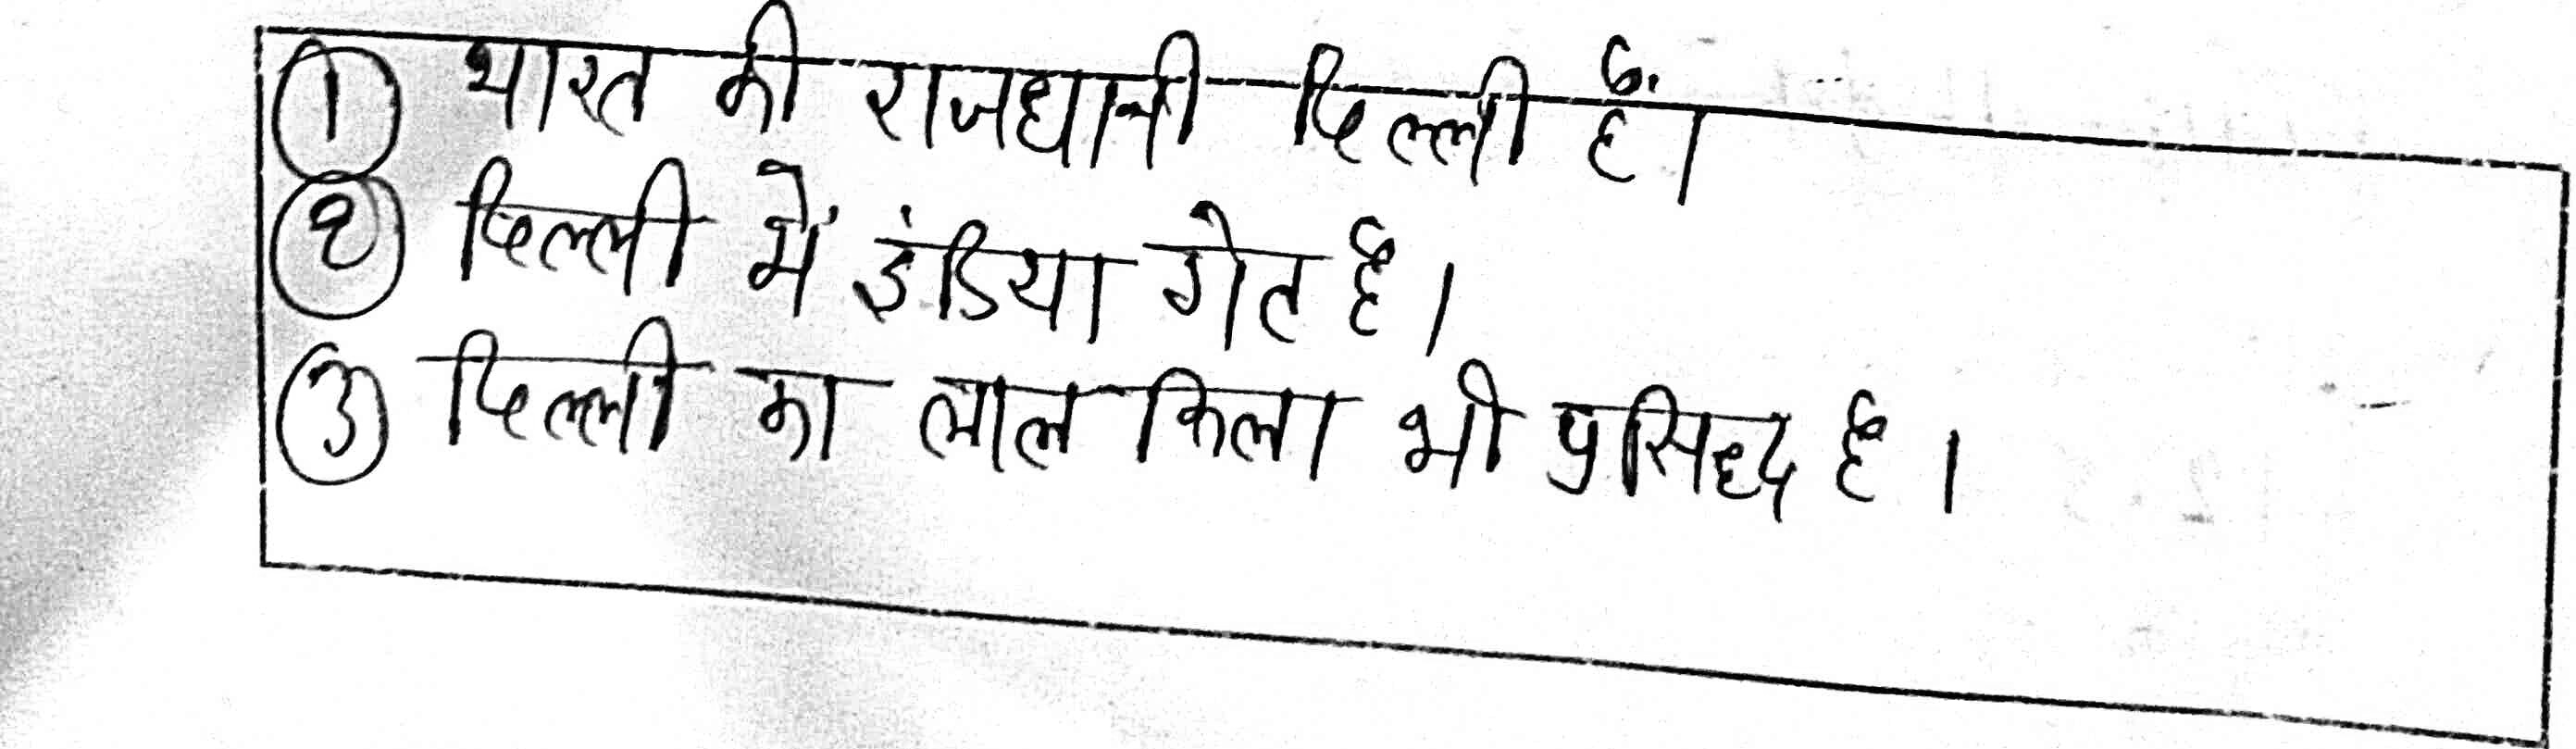 ① भारत की राजधानी दिल्ली हैं।
② दिल्ली में इंडिया गेट है।
③ दिल्ली का लाल किला भी प्रसिद्ध है।